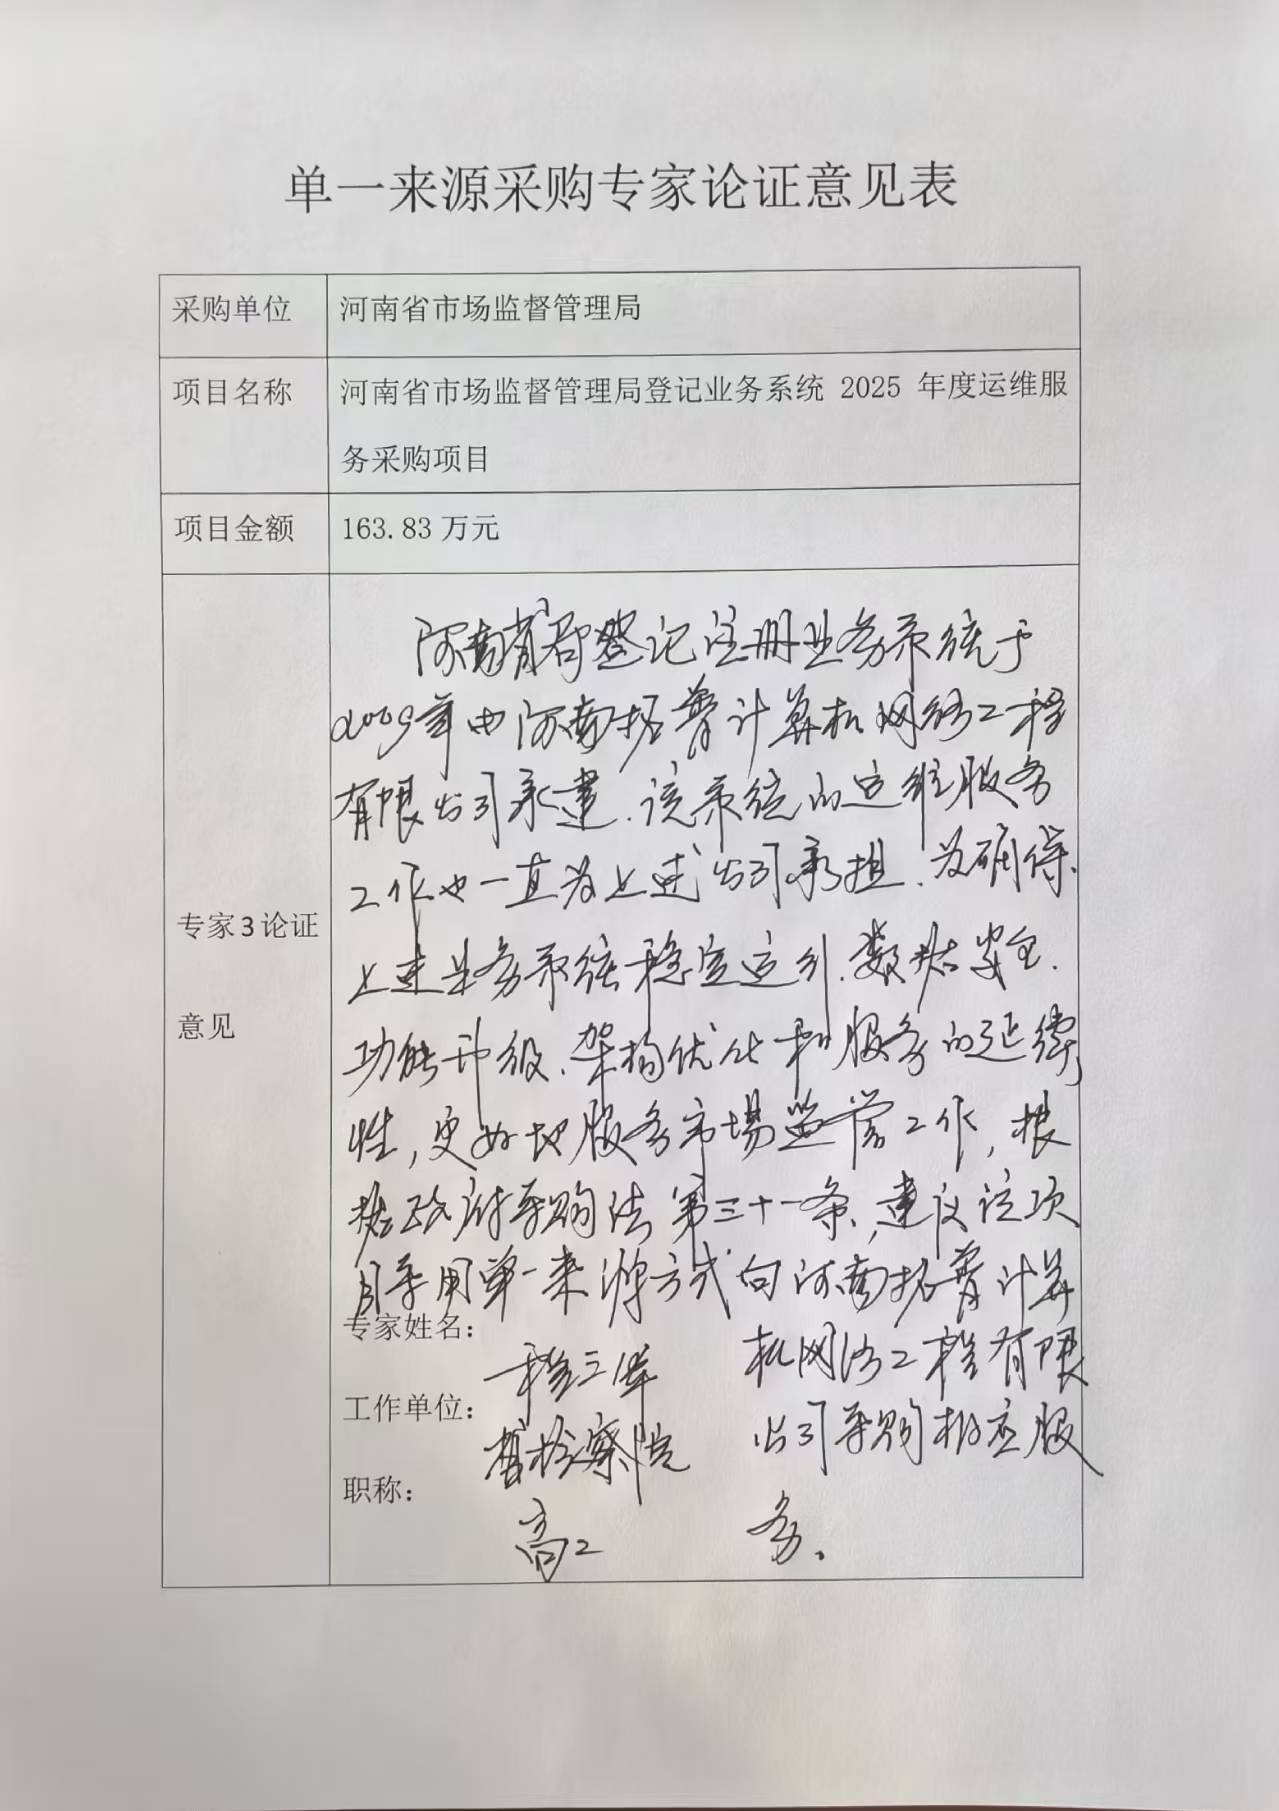 单一来源采购专家论证意见表
采购单位
河南省市场监督管理局
项目名称
河南省市场监督管理局登记业务系统 2025 年度运维服
务采购项目
项目金额
163.83 万元
专家3论证
意见
河南省局登记注册业务系统于
2009年由河南拓普计算机网络工程
有限公司承建.该系统的运维服务
工作也一直为上述公司承担.为确保
上述业务系统稳定运行.数据安全.
功能升级.架构优化和服务的延续
性,更好地服务市场监管工作,根
据政府采购法第三十一条,建议该项
目采用单一来源方式向河南拓普计算
机网络工程有限
公司采购相应服
务.
专家姓名:
工作单位:
省检察院
职称:
高工